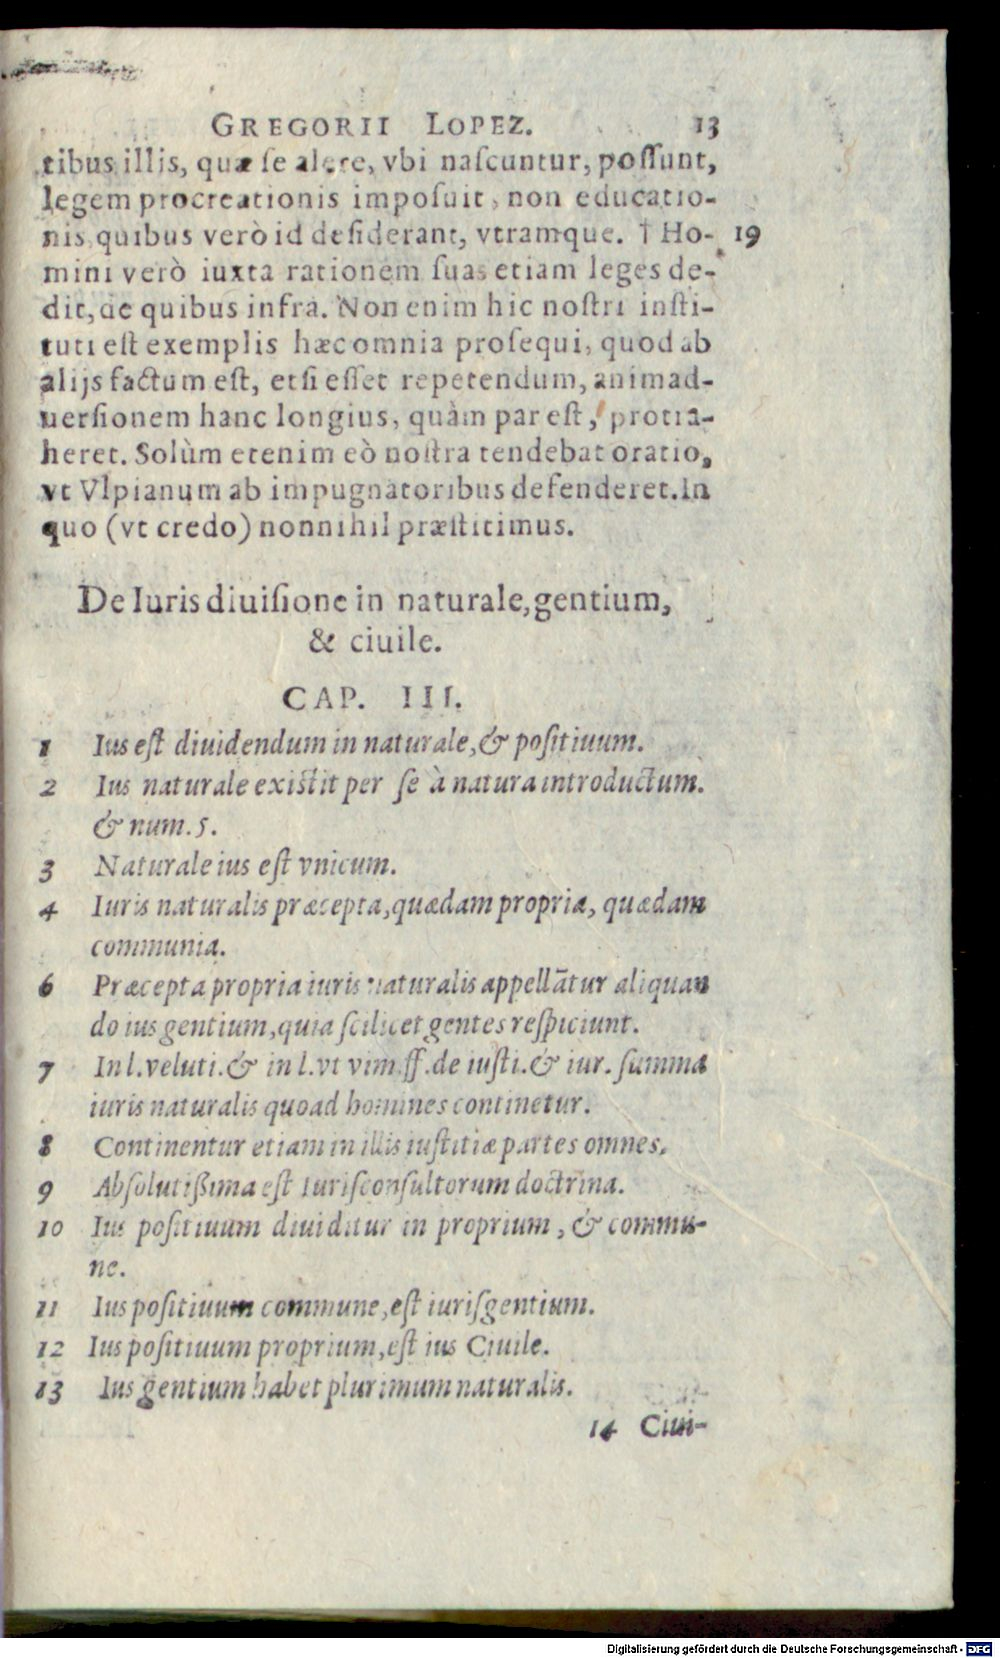 GREGORII LOPEZ. 13
tibus illis, quæ se alere, vbi nascuntur, possunt,
legem procreationis imposuit, non educatio-
nis, quibus verò id desiderant, vtramque. † Ho- 19
mini verò iuxta rationem suas etiam leges de-
dit, de quibus infra. Non enim hic nostri insti-
tuti est exemplis hæc omnia prosequi, quod ab
alijs factum est, etsi esset repetendum, animad-
uersionem hanc longius, quàm par est, protra-
heret. Solùm etenim eò nostra tendebat oratio,
vt Vlpianum ab impugnatoribus defenderet. In
quo (vt credo) nonnihil præstitimus.
De Iuris diuisione in naturale, gentium,
& ciuile.
CAP. III.
1 Ius est diuidendum in naturale, & positiuum.
2 Ius naturale existit per se à natura introductum.
& num. 5.
3 Naturale ius est vnicum.
4 Iuris naturalis præcepta, quædam propria, quædam
communia.
6 Præcepta propria iuris naturalis appellātur aliquan
do ius gentium, quia scilicet gentes respiciunt.
7 In l. veluti. & in l. vt vim. ff. de iusti. & iur. summa
iuris naturalis quoad homines continetur.
8 Continentur etiam in illis iustitiæ partes omnes.
9 Absolutißima est Iurisconsultorum doctrina.
10 Ius positiuum diuiditur in proprium, & commu-
ne.
11 Ius positiuum commune, est iuris gentium.
12 Ius positiuum proprium, est ius Ciuile.
13 Ius gentium habet plurimum naturalis.
14 Ciui-
Digitalisierung gefördert durch die Deutsche Forschungsgemeinschaft - DFG